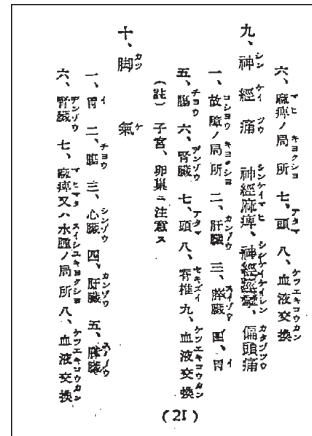 六、麻痺ノ局所 七、頭 八、血液交換
九、神經痛 神經麻痺、神經痙攣、偏頭痛
一、故障ノ局所 二、肝臓 三、膵臓 四、胃
五、腸 六、腎臓 七、頭 八、脊椎 九、血液交換
(註) 子宮、卵巣ニ注意ス
十、脚氣
一、胃 二、腸 三、心臓 四、肝臓 五、膵臓
六、腎臓 七、麻痺又ハ水腫ノ局所 八、血液交換
(21)